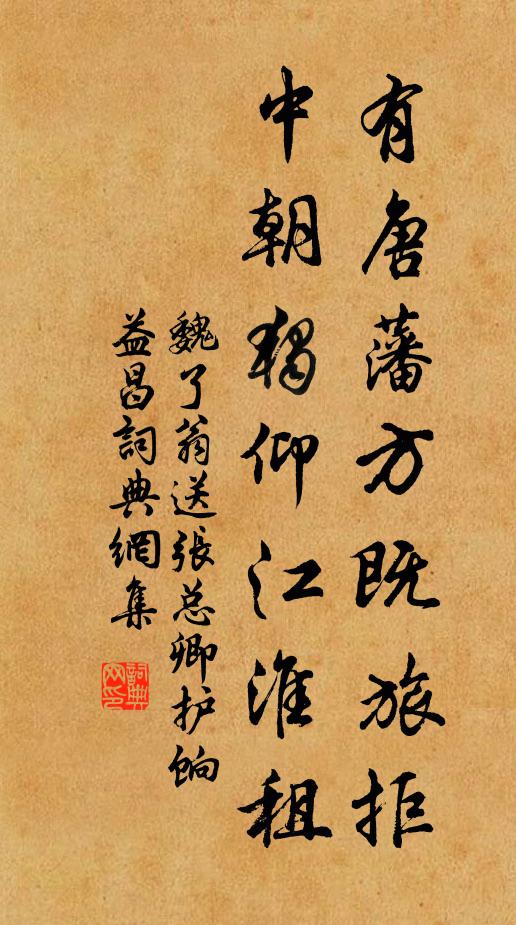 有唐藩方既旅拒
中朝獨仰江淮租
魏了翁送張总卿护餉
益昌詞典網集
詞典网印